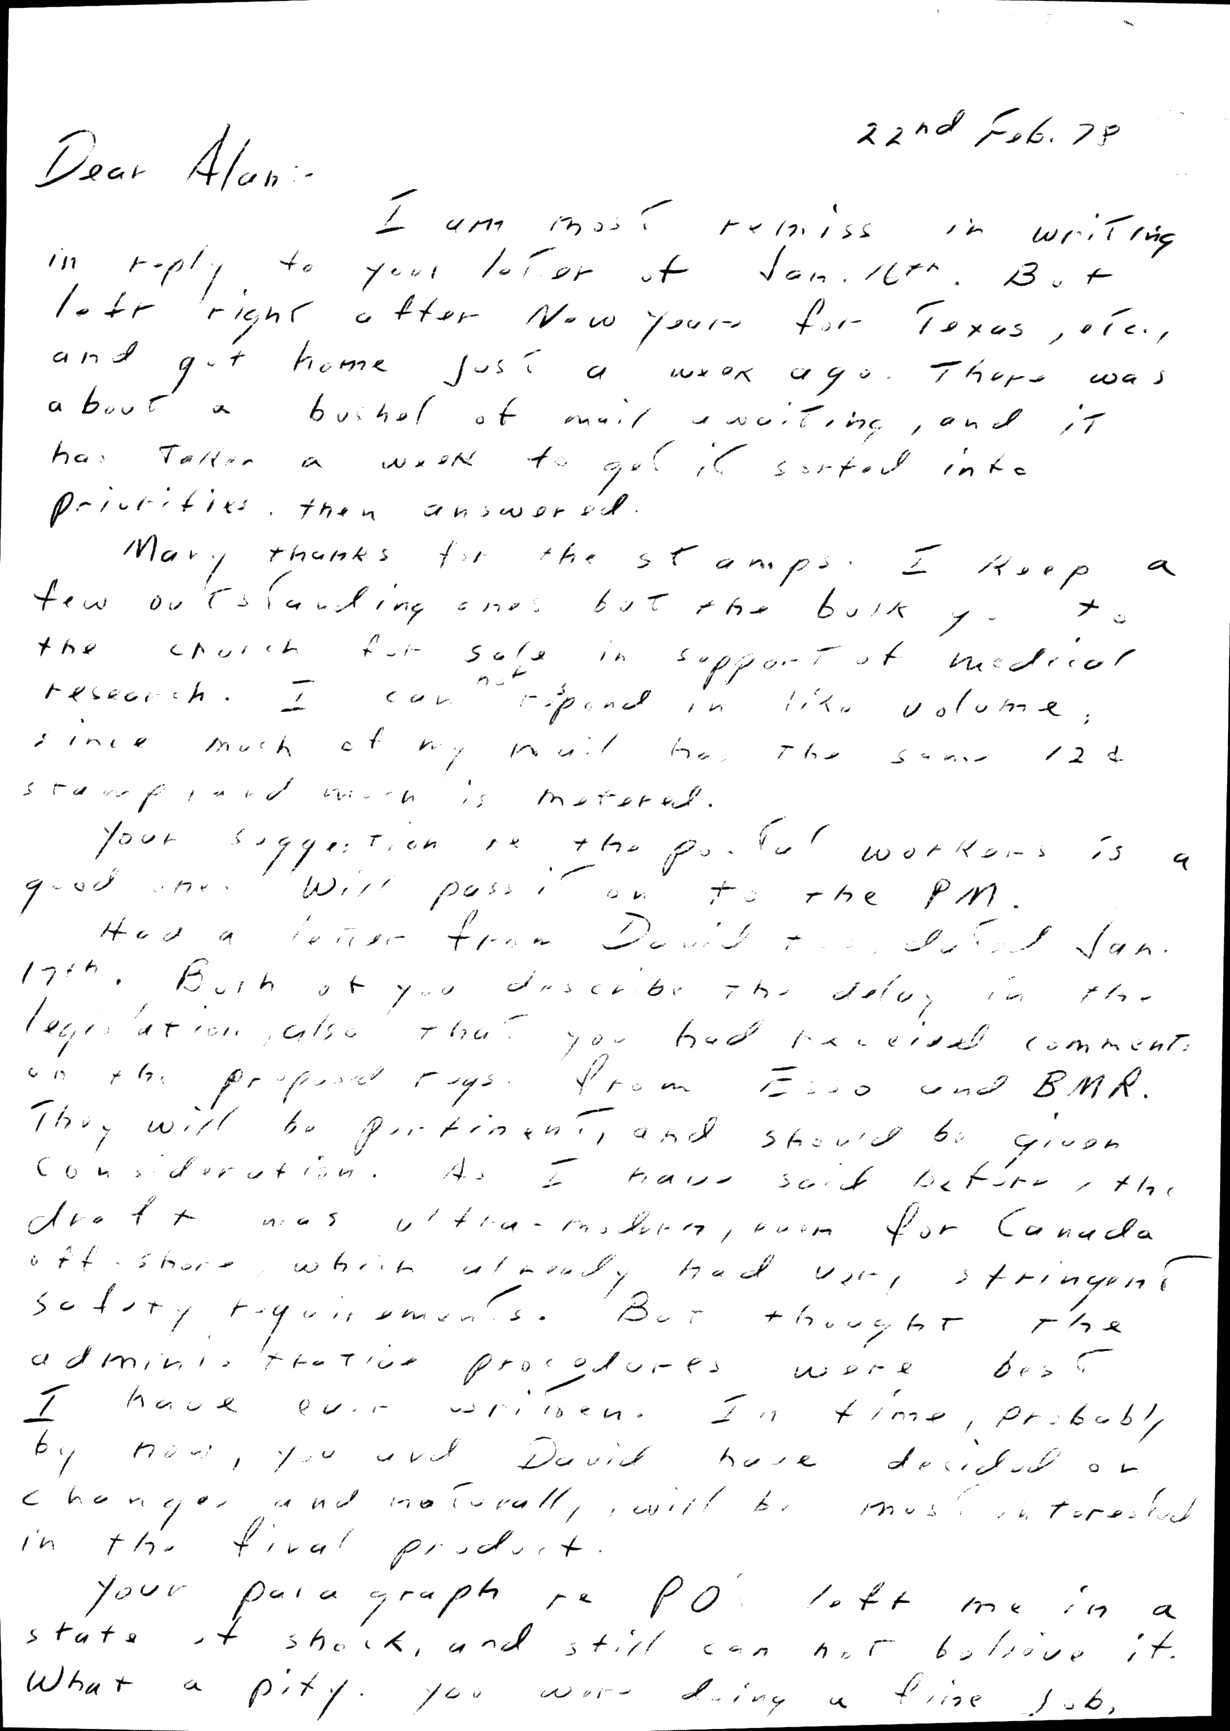 22nd Feb. 78
Dear Alan:-
I am most remiss in writing
in reply to your letter of Jan. 16th. But
left right after New Years for Texas, etc.,
and got home just a week ago. There was
about a bushel of mail awaiting, and it
has taken a week to get it sorted into
priorities, then answered.
Many thanks for the stamps. I keep a
few outstanding ones but the bulk go to
the church for sale in support of medical
research. I can not respond in like volume,
since much of my mail has the same 12¢
stamp, and much is metered.
Your suggestion re the postal workers is a
good one. Will pass it on to the PM.
Had a letter from David too, dated Jan.
17th. Both of you describe the delay in the
legislation, also that you had received comments
on the proposed regs. from Esso and BMR.
They will be pertinent, and should be given
consideration. As I have said before, the
draft was ultra-modern, even for Canada
off-shore, which already had very stringent
safety requirements. But thought the
administrative procedures were best
I have ever written. In time, probably
by now, you and David have decided on
changes and naturally, will be most interested
in the final product.
Your paragraph re PO left me in a
state of shock, and still can not believe it.
What a pity. You were doing a fine job,